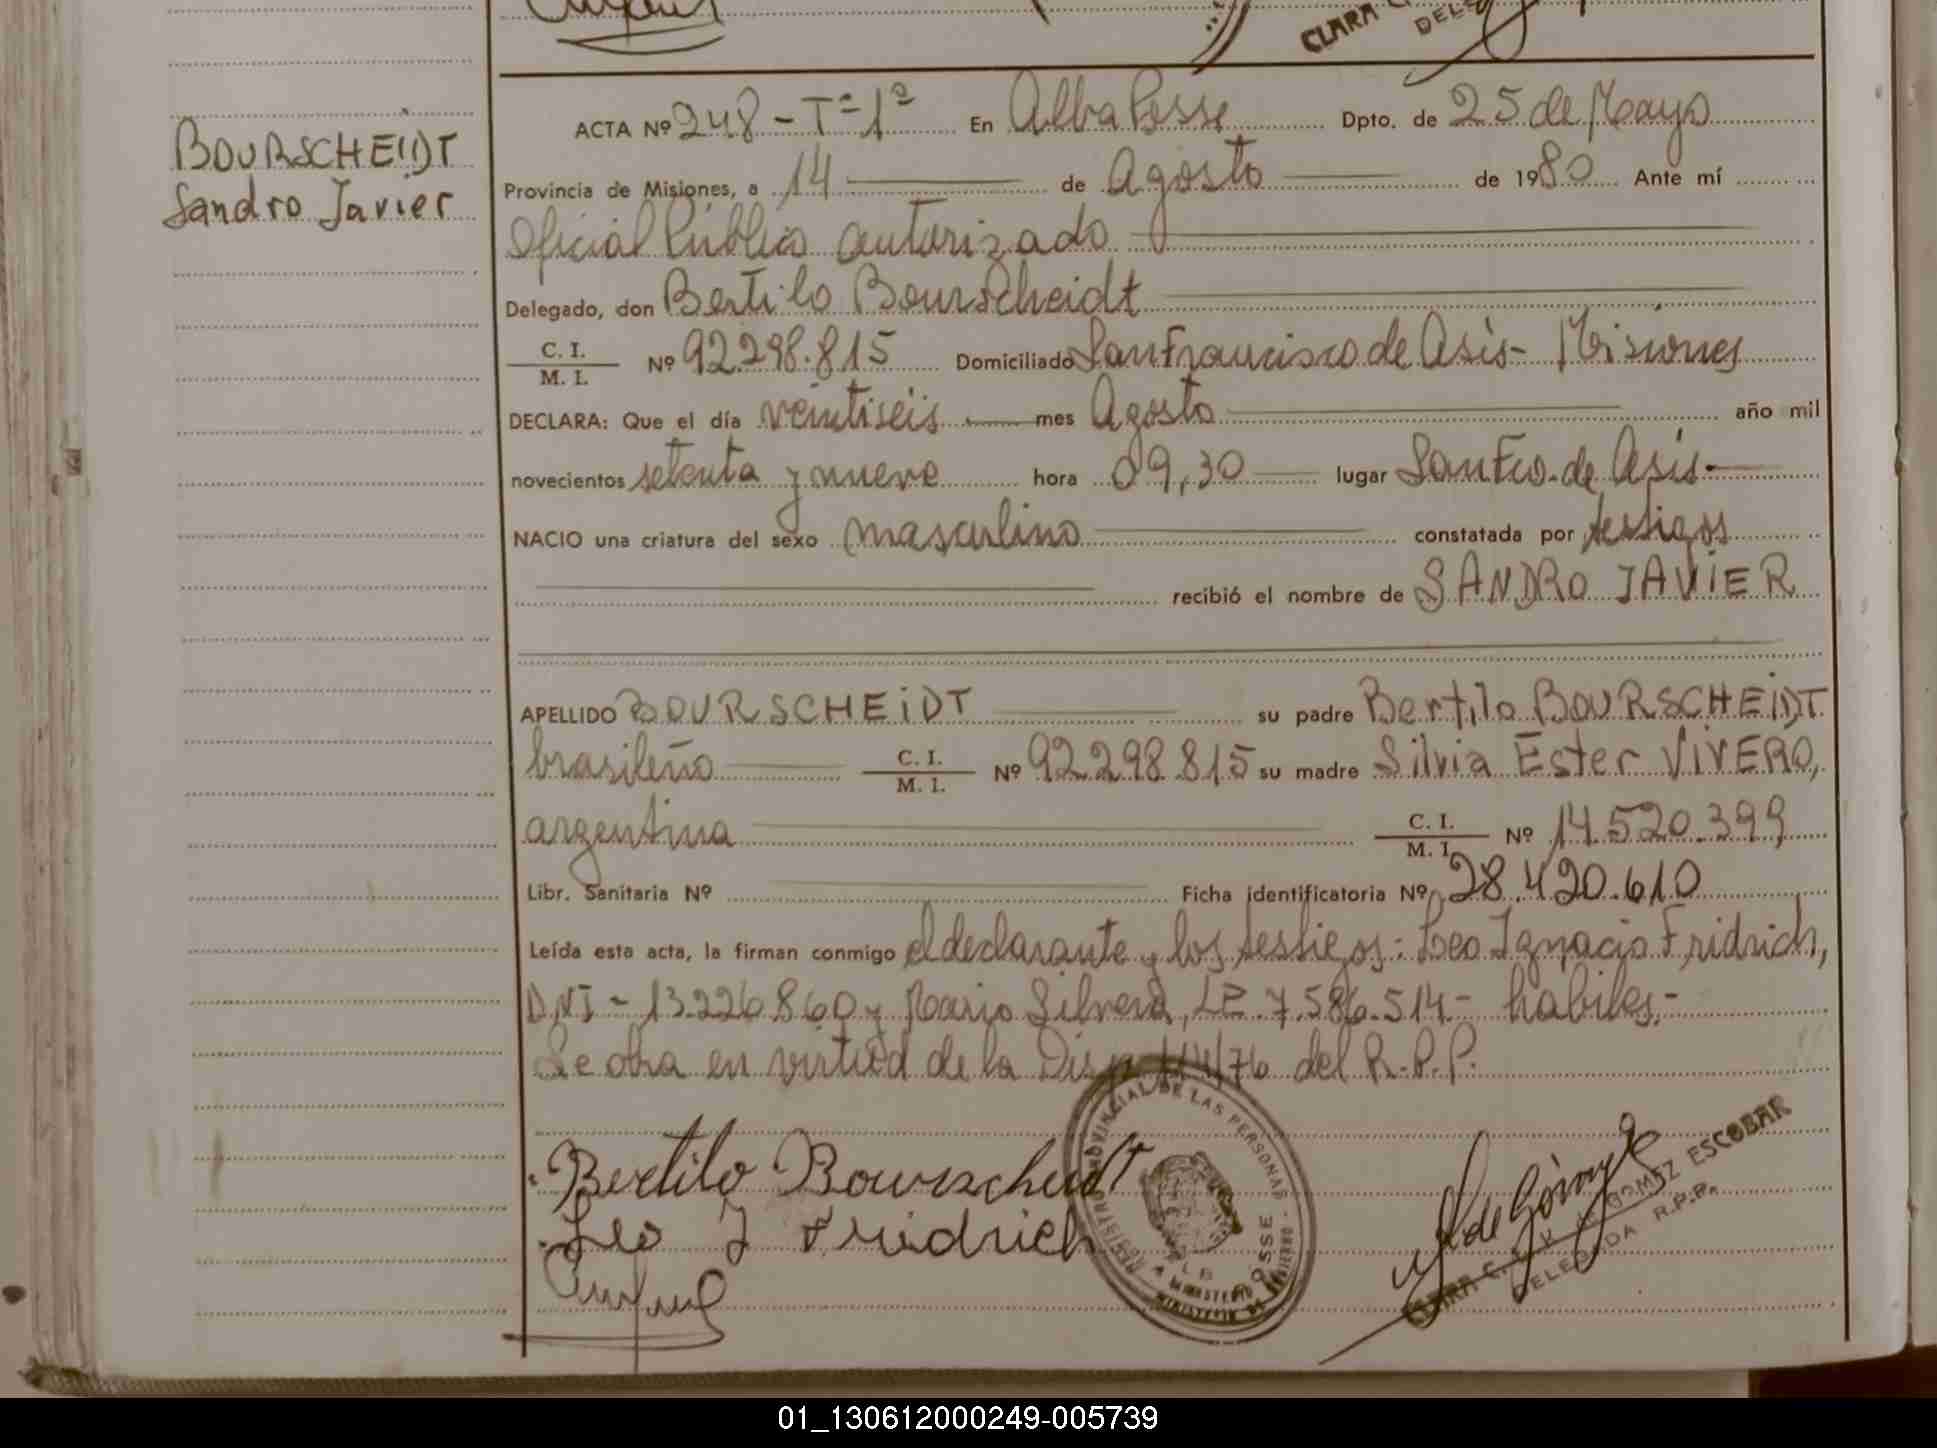 CLARA C.
DELE
BOURSCHEIDT
Sandro Javier
ACTA Nº 248 - Tº 1º En Alba Posse Dpto. de 25 de Mayo
Provincia de Misiones, a 14 de Agosto de 1980 Ante mí
Oficial Público autorizado
Delegado, don Bertilo Bourscheidt
C. I.
M. I. Nº 92.298.815 Domiciliado San Francisco de Asís - Misiones
DECLARA: Que el día veintiseis mes Agosto año mil
novecientos setenta y nueve hora 09,30 lugar San Fco. de Asís.-
NACIO una criatura del sexo masculino constatada por testigos
recibió el nombre de SANDRO JAVIER
APELLIDO BOURSCHEIDT su padre Bertilo BOURSCHEIDT
brasileño C. I. M. I. Nº 92.298.815 su madre Silvia Ester VIVERO,
argentina C. I. M. I. Nº 14.520.399
Libr. Sanitaria Nº Ficha identificatoria Nº 28.420.610
Leída esta acta, la firman conmigo el declarante y los testigos: Leo Ignacio Fridrich,
DNI - 13.226.860 y Mario Silvera, LE. 7.586.514 - hábiles.-
Se obra en virtud de la Disp. 114/76 del R.P.P.
Bertilo Bourscheidt
Leo I Fridrich
REGISTRO PROVINCIAL DE LAS PERSONAS
MINISTERIO DE GOBIERNO
CLARA C. GOMEZ ESCOBAR
DELEGADA R.P.P.
01_130612000249-005739